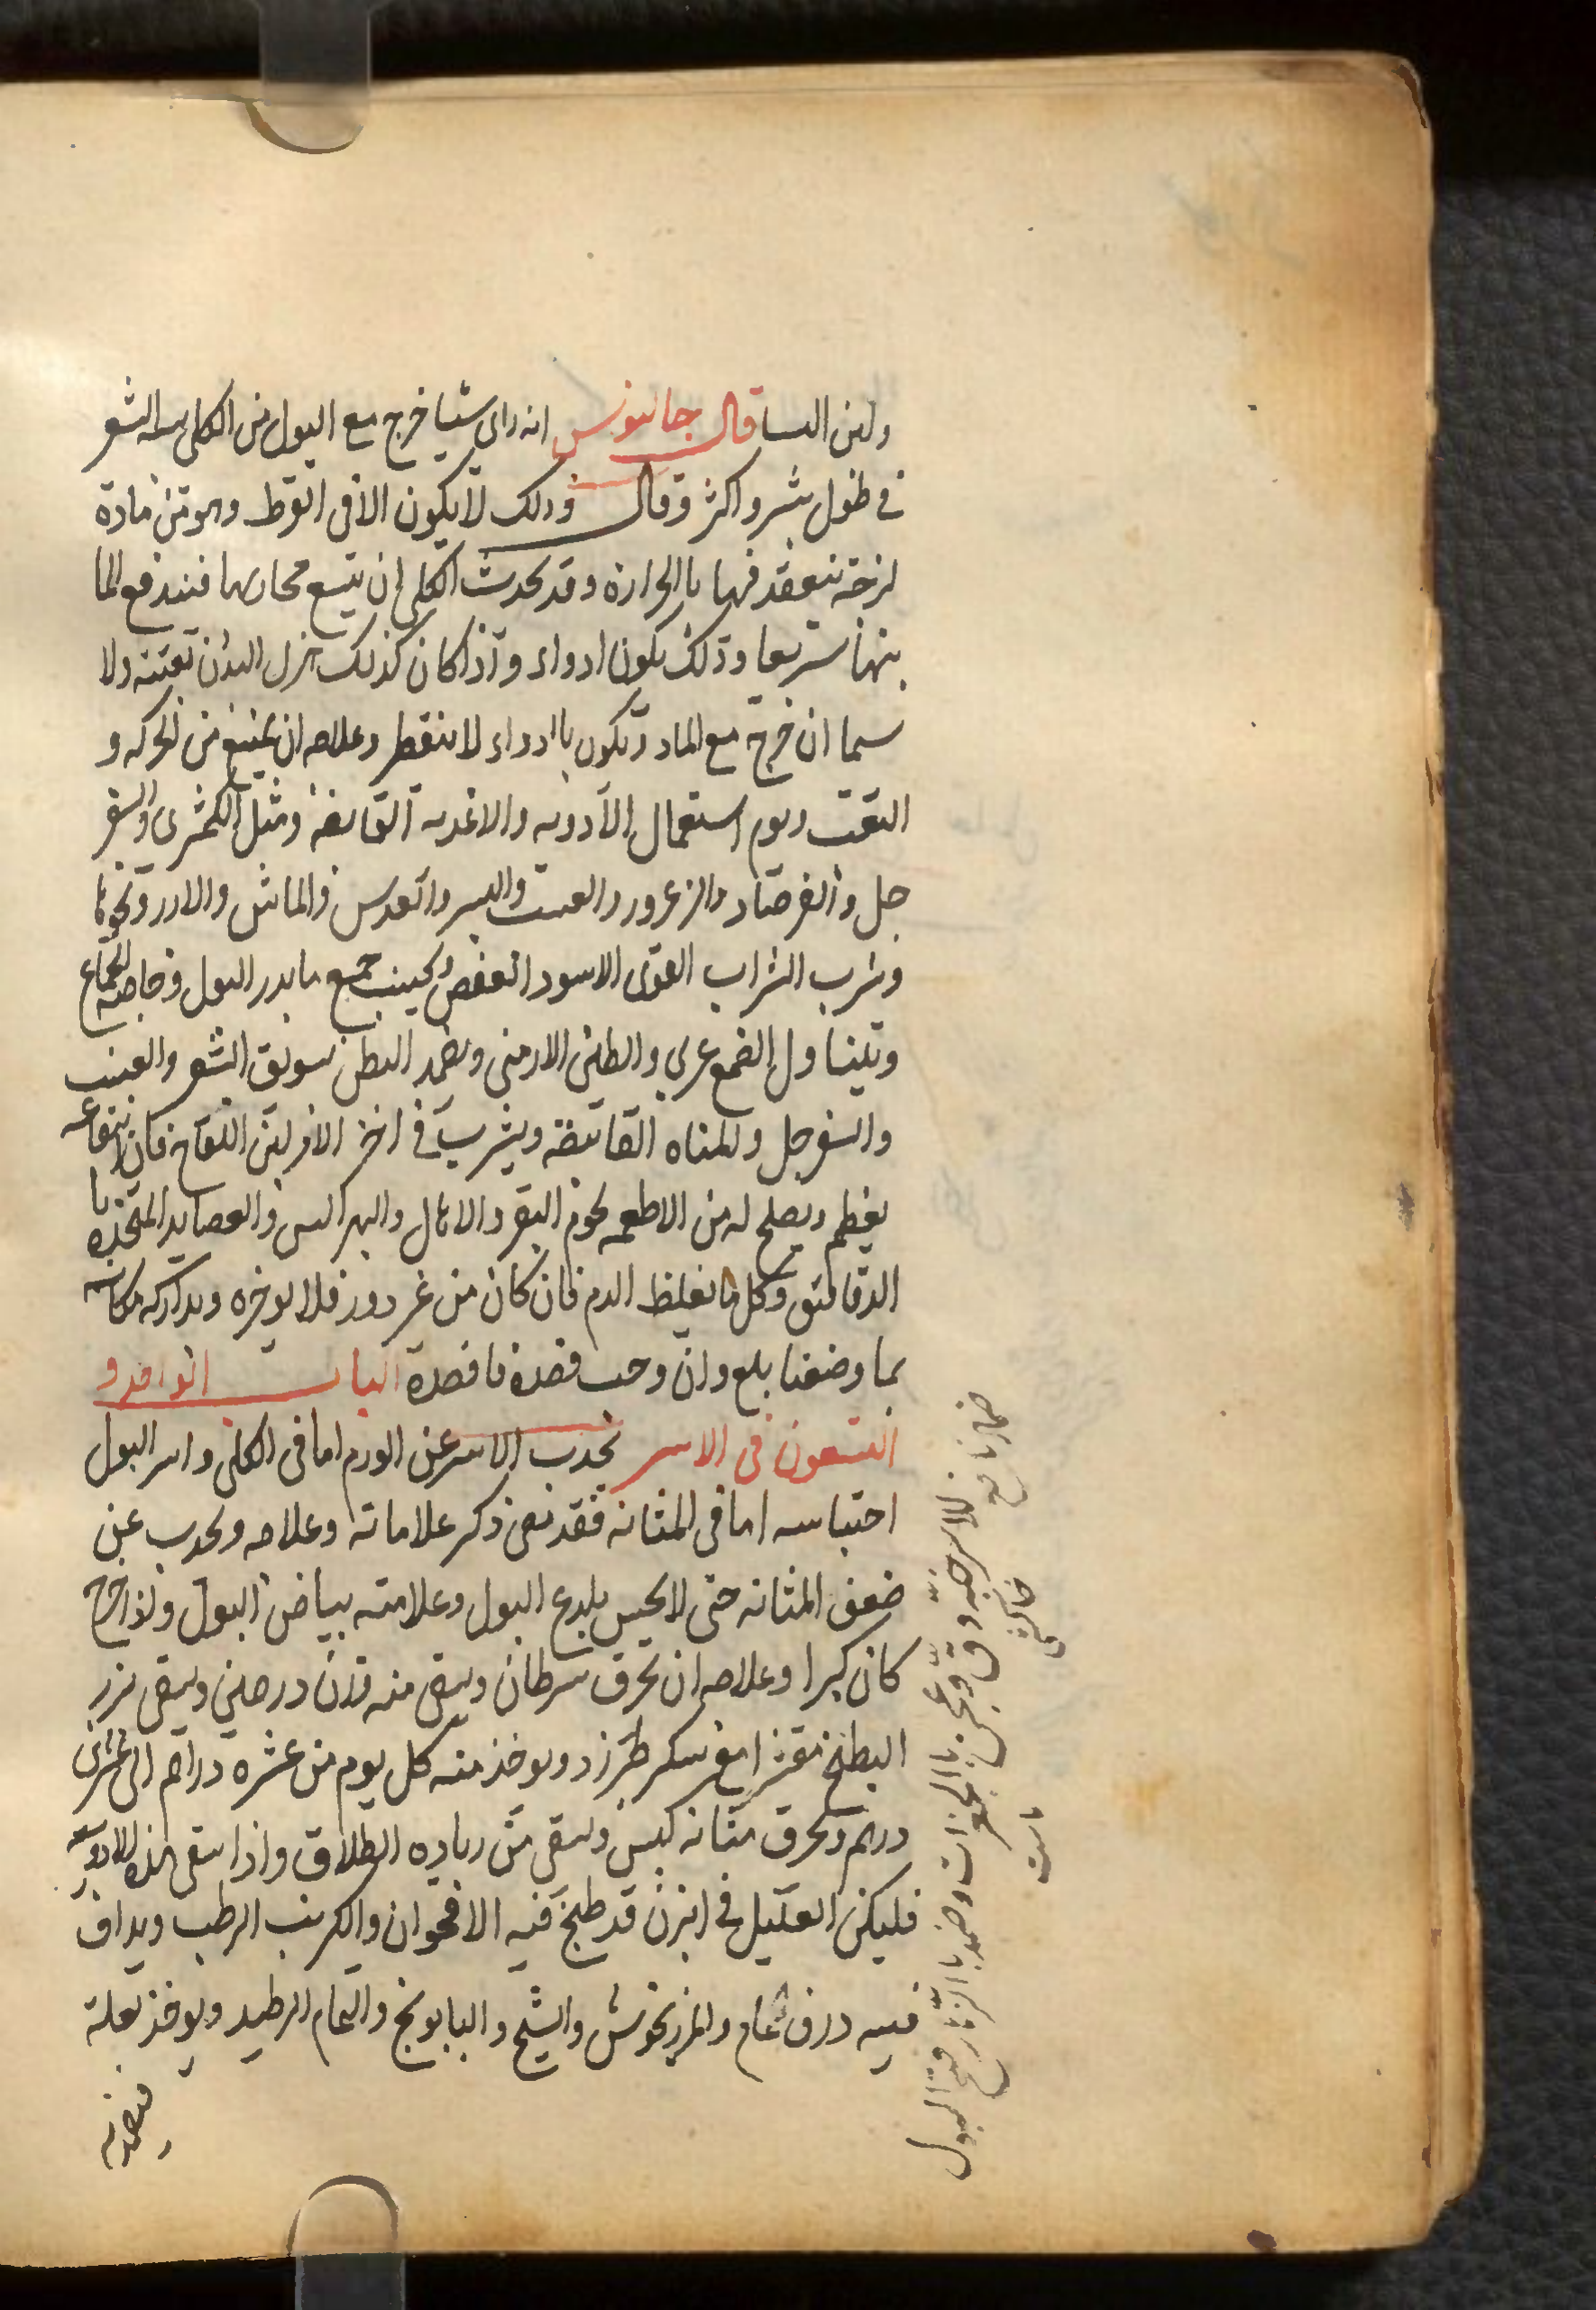 ولبن النسا قال جالينوس انه رای شيا خرج مع البول من الكلى يشبه الشعر
فی طول شبر واكثر وقال وذلك لا يكون الا فی الفرط وهو من مادة
لزجة تنعقد فيها بالحرارة وقد يحدث الكلى ان يتسع مجاريها فيندفع الما
منها سريعا وذلك يكون ادواء واذا كان كذلك هزل البدن بعينه ولا
سيما ان خرج مع الماد ويكون باادواء لا ينقطر وعلاجه ان يمنع من الحركه و
التعب ويوم استعمال الادويه والاغديه القابضة ومثل الكمثرى والسفر
جل والفرصاد والزعرور والعنب والبسر والعدس والماش والارز ونحوها
وشرب الشراب القوى الاسود العفص ويجنب جميع ما يدر البول وخاصة الجماع
ويتناول الصمغ عربی والطين الارمنی ويضمد البطن بسويق الشعير والعنب
والسفرجل والمياه القابضة ويشرب فی اخر الامر لبن اللقاح فان انتفاعه
يعظم ويصلح له من الاطعمه لحوم البقر والايل والهرايس والعصايد المتخذه با
الدقايق وكل ما يغلظ الدم فان كان من غير دور فلا يوخره ويداركه مكانه
بما وصفنا بلع وان وجب فصده فافصده الباب الواحد و
التسعون فی الاسر يحدث الاسر عن الورم اما فی الكلى واسر البول
احتباسه اما فی المثانه فقد مضى ذكر علاماته وعلاجه ويحدث عن
ضعف المثانه حتى لا يحس بلدع البول وعلامته بياض البول واذا خرج
كان كبيرا وعلاجه ان يحرق سرطان ويسقى منه وزن درهمين ويسقى بزر
البطيخ مقشرا مع سكر طبرزد ويوخذ منه كل يوم من عشره دراهم الى عشرين
درهم ويحرق مثانه كبش ويسقى من رياده الطلاق واذا سقى هذه الادويه
فليكن العليل فی ابزن قد طبخ فيه الاقحوان والكرنب الرطب ويداف
فيه ذرق حمام والمرزنجوش والشيح والبابونج والنمام الرطيد ويوخذ بعله
فيضمد به
ضماد نافع
للاسر حبه دق وعجن باالجغرات وضمد باالزنار فتح البول
خاكشی
ماست